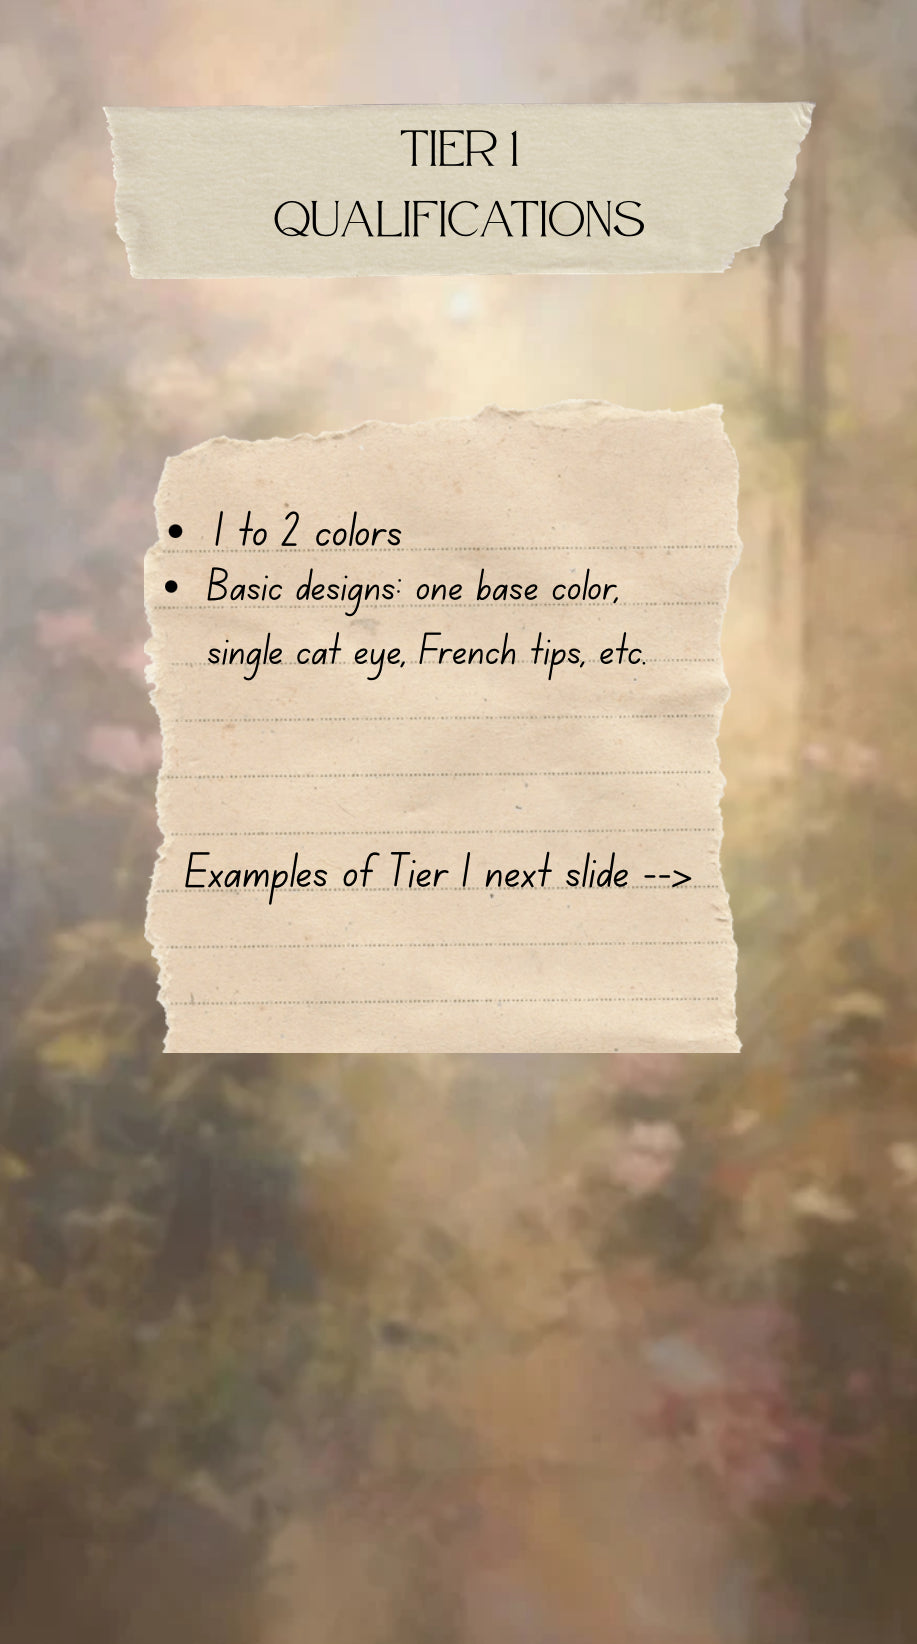 TIER 1
QUALIFICATIONS
• 1 to 2 colors
• Basic designs: one base color,
single cat eye, French tips, etc.
Examples of Tier 1 next slide -->